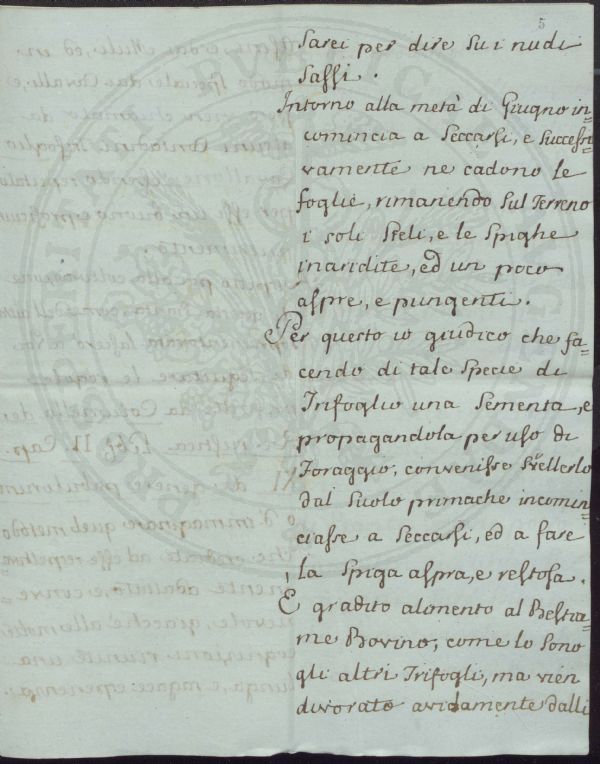 5
sarei per dire su i nudi
sassi.
Intorno alla metà di Giugno in=
comincia a seccarsi, e successi=
vamente ne cadono le
foglie, rimanendo sul Terreno
i soli steli, e le spighe
inaridite, ed un poco
aspre, e pungenti.
Per questo io giudico che fa=
cendo di tale specie di
Trifoglio una sementa, e
propagandola per uso di
Foraggio, convenisse svellerlo
dal suolo primache incomin=
ciasse a seccarsi, ed a fare
la spiga aspra, e restosa.
E' gradito alimento al Bestia=
me Bovino, come lo sono
gli altri Trifogli, ma vien
divorato avidamente dalli